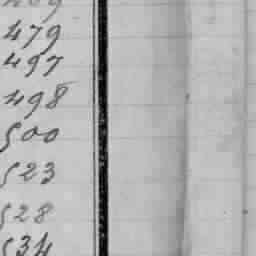 479
497
498
500
523
528
534